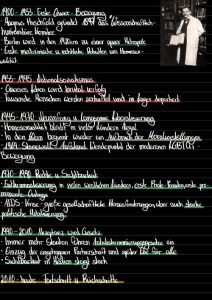 1900 - 1933 Erste Queer-Bewegung
- Magnus Hirschfeld gründet 1897 das Wissenschaftlich-
humanitäre Komitee
- Berlin wird in den 1920ern zu einer queer Metropole
- Erste medizinische u. rechtliche Debatten um Homosex-
ualität
1933 - 1945 Nationalsozialismus
- Queeres Leben wird brutal verfolgt
- Tausende Menschen werden verhaftet und in Lager deportiert
1945 - 1970 Verfolgung u. langsame Liberalisierung
- Homosexualität bleibt in vielen Ländern illegal
- In den 60ern beginnt wieder ein der Moralvorstellungen
- 1969 Stonewall Aufstand Wendepunkt der modernen LGBTQ+-
Bewegung
1970 - 1990 Rechte u. Sichtbarkeit
- Entkriminalisierung in vielen westlichen Ländern, erste Pride-
- AIDS-Krise: große gesellschaftliche Herausforderungen, aber auch starke
politische Mobilisierung
1990 - 2010 Akzeptanz und Gesetz
- Immer mehr Staaten führen Antidiskriminierungsgesetze ein
- Einzug der eingetragenen Partnerschaft und später Ehe für alle
- Sichtbarkeit in Medien steigt stark
2010 - heute Fortschritt u. Rückschritte